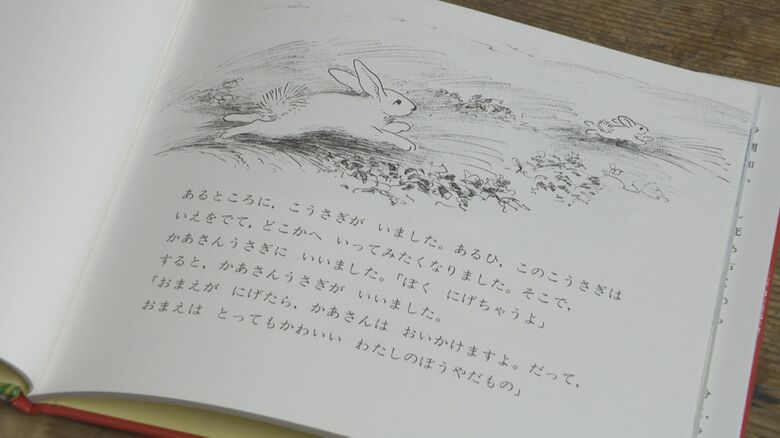 あるところに，こうさぎが いました。あるひ，このこうさぎは
いえをでて，どこかへ いってみたくなりました。そこで，
かあさんうさぎに いいました。「ぼく にげちゃうよ」
すると，かあさんうさぎが いいました。
「おまえが にげたら，かあさんは おいかけますよ。だって，
おまえは とってもかわいい わたしのぼうやだもの」